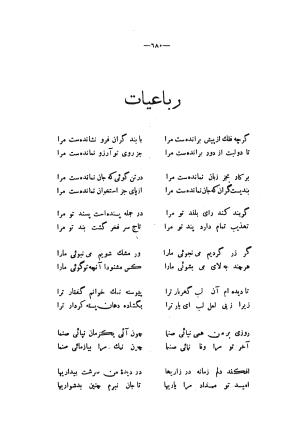 —۶۸۰—
رباعیات
گرچه فلک از پیش براندهست مرا با بند گران فرو نشاندهست مرا
تا دولت از دور براندهست مرا جز روی تو آرزو نماندهست مرا
بر کار بجز زبان نماندهست مرا در تن گوئی که جان نماندهست مرا
بندیست گران که جان نماندهست مرا از پای جز استخوان نماندهست مرا
گویند کند رای بلند تو مرا در جمله پسندهاست پسند تو مرا
تعذیب تمام دارد پند تو مرا تاج سر فخر گشت بند تو مرا
گر زر گردیم می نجوئی ما را ور مشک شویم می نبوئی ما را
هرچند به لای می بشوئی ما را کس مشنودا آنچه تو گوئی ما را
تا دیده‌ام آن لب گهربار ترا پیوسته نمک خوانم گفتار ترا
زیرا زپی لعل لب ای یار ترا بگشاده دهان پسته کردار ترا
روزی بر من همی نیائی صنما چون آئی یکزمان نپائی صنما
آخر تو مرا وفا نمائی صنما چون نمک مرا بیازمائی صنما
اعتمدی دلم زمانه در زاریها در دیدهٔ من سرشت بیداریها
امید تو میداد مرا یاریها تا جان نبرم چنین بدشواریها